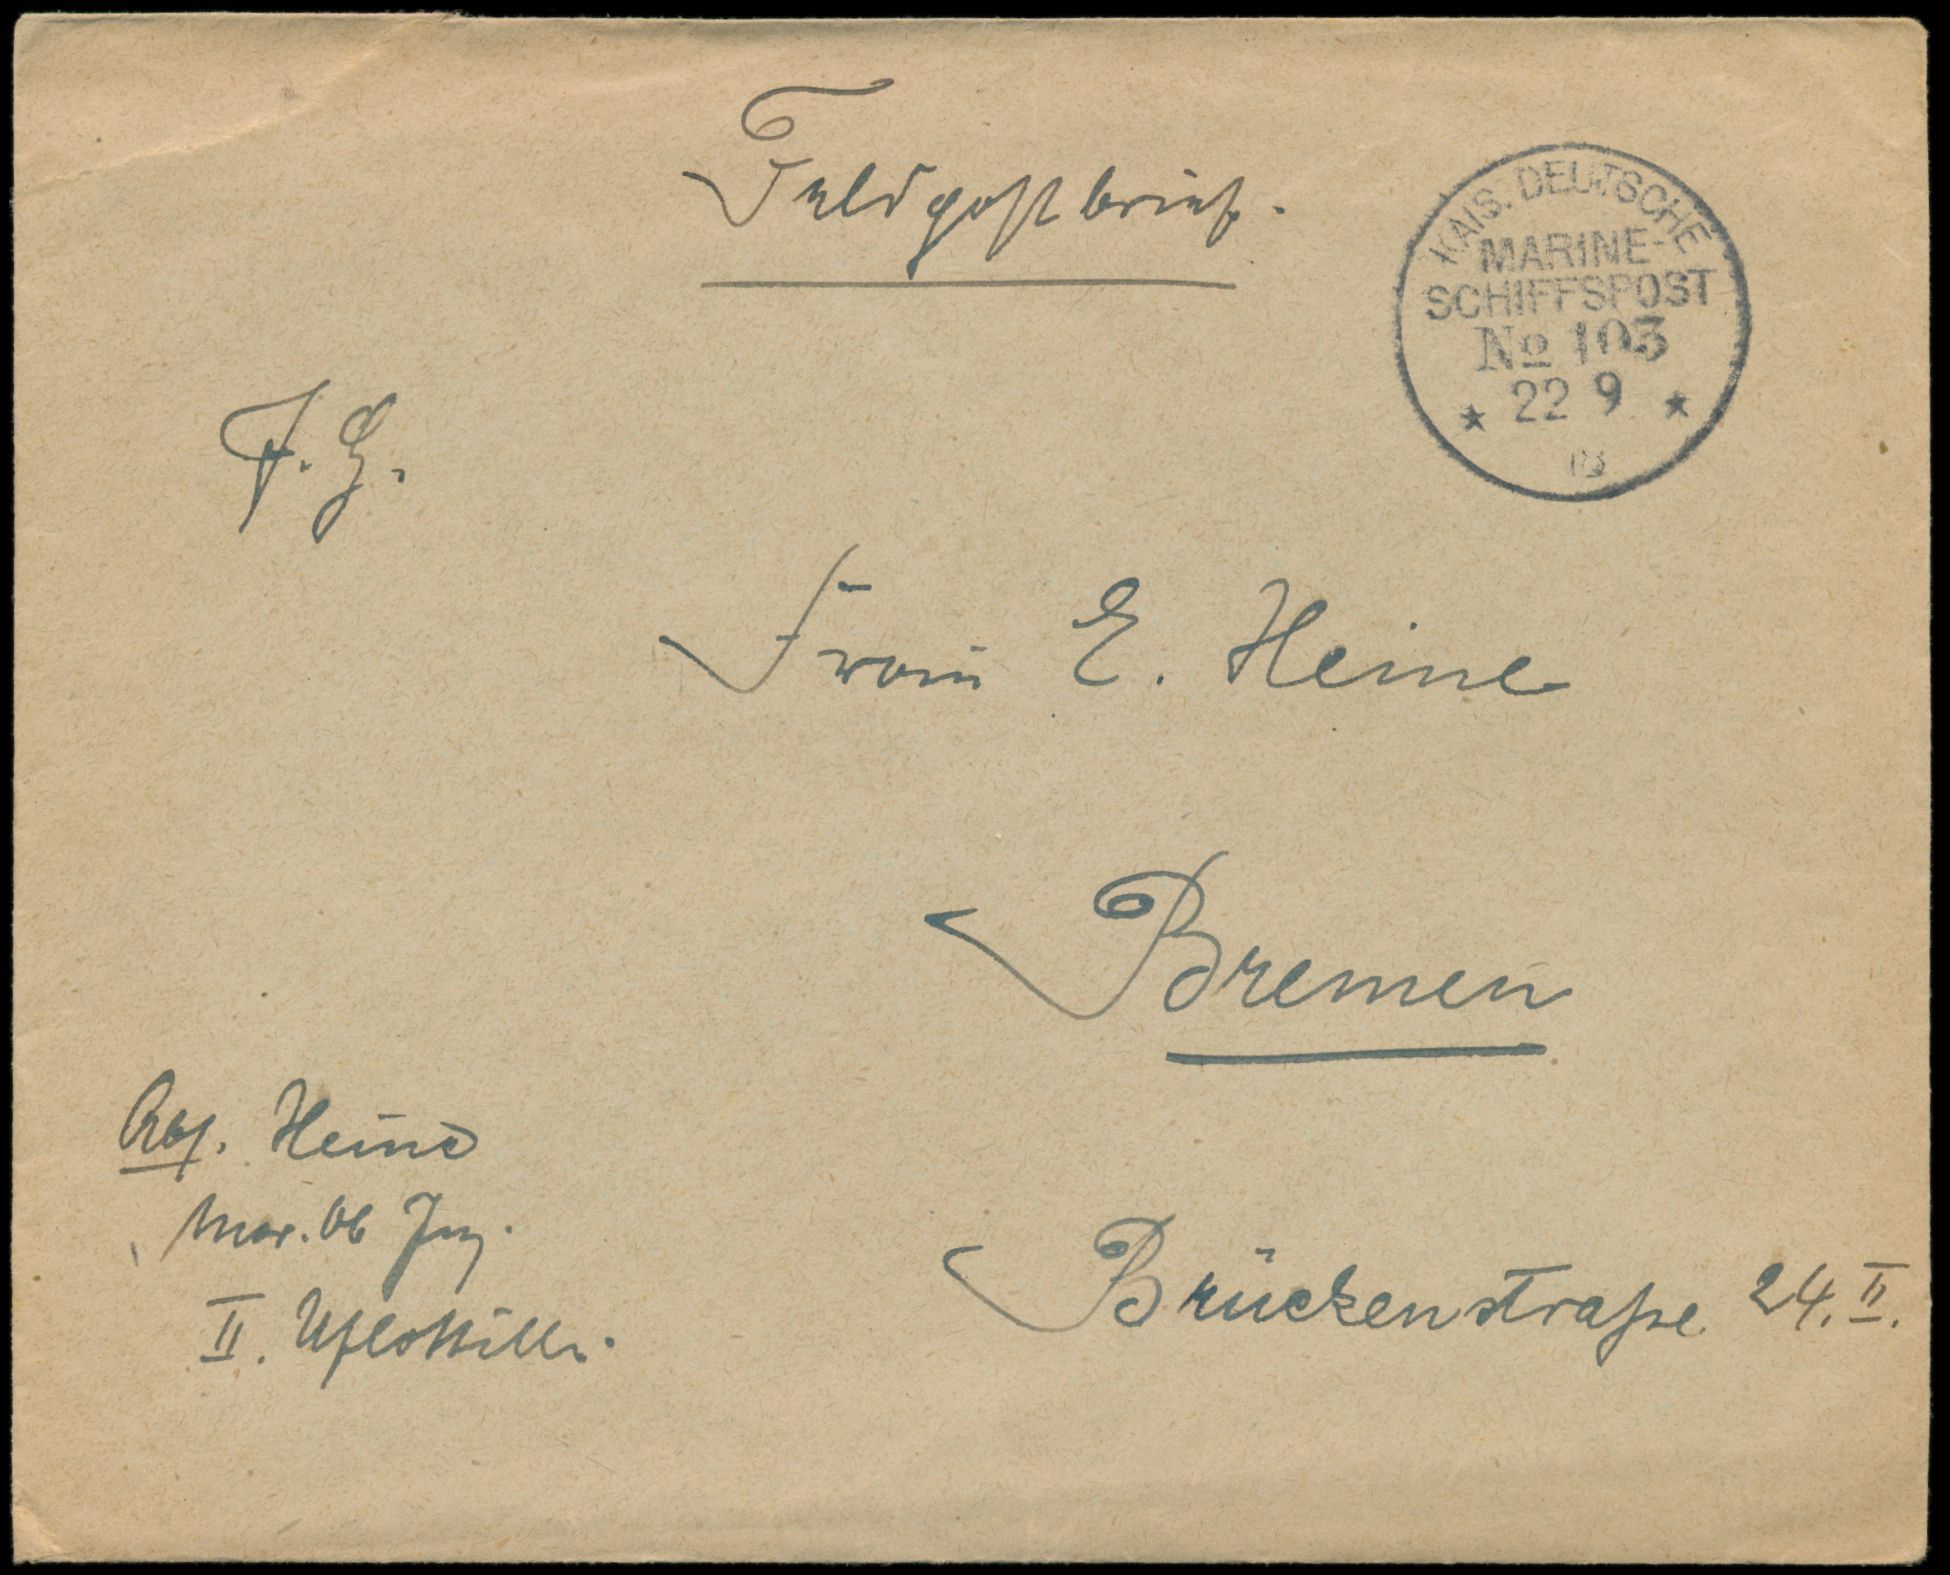 Feldpostbrief.
KAIS. DEUTSCHE
MARINE-
SCHIFFSPOST
No 103
* 22 9 *
F. H.
Frau E. Heine
Bremen
Abs. Heine
Mar. Ob Ing.
II. Uflottille.
Brückenstraße 24. II.